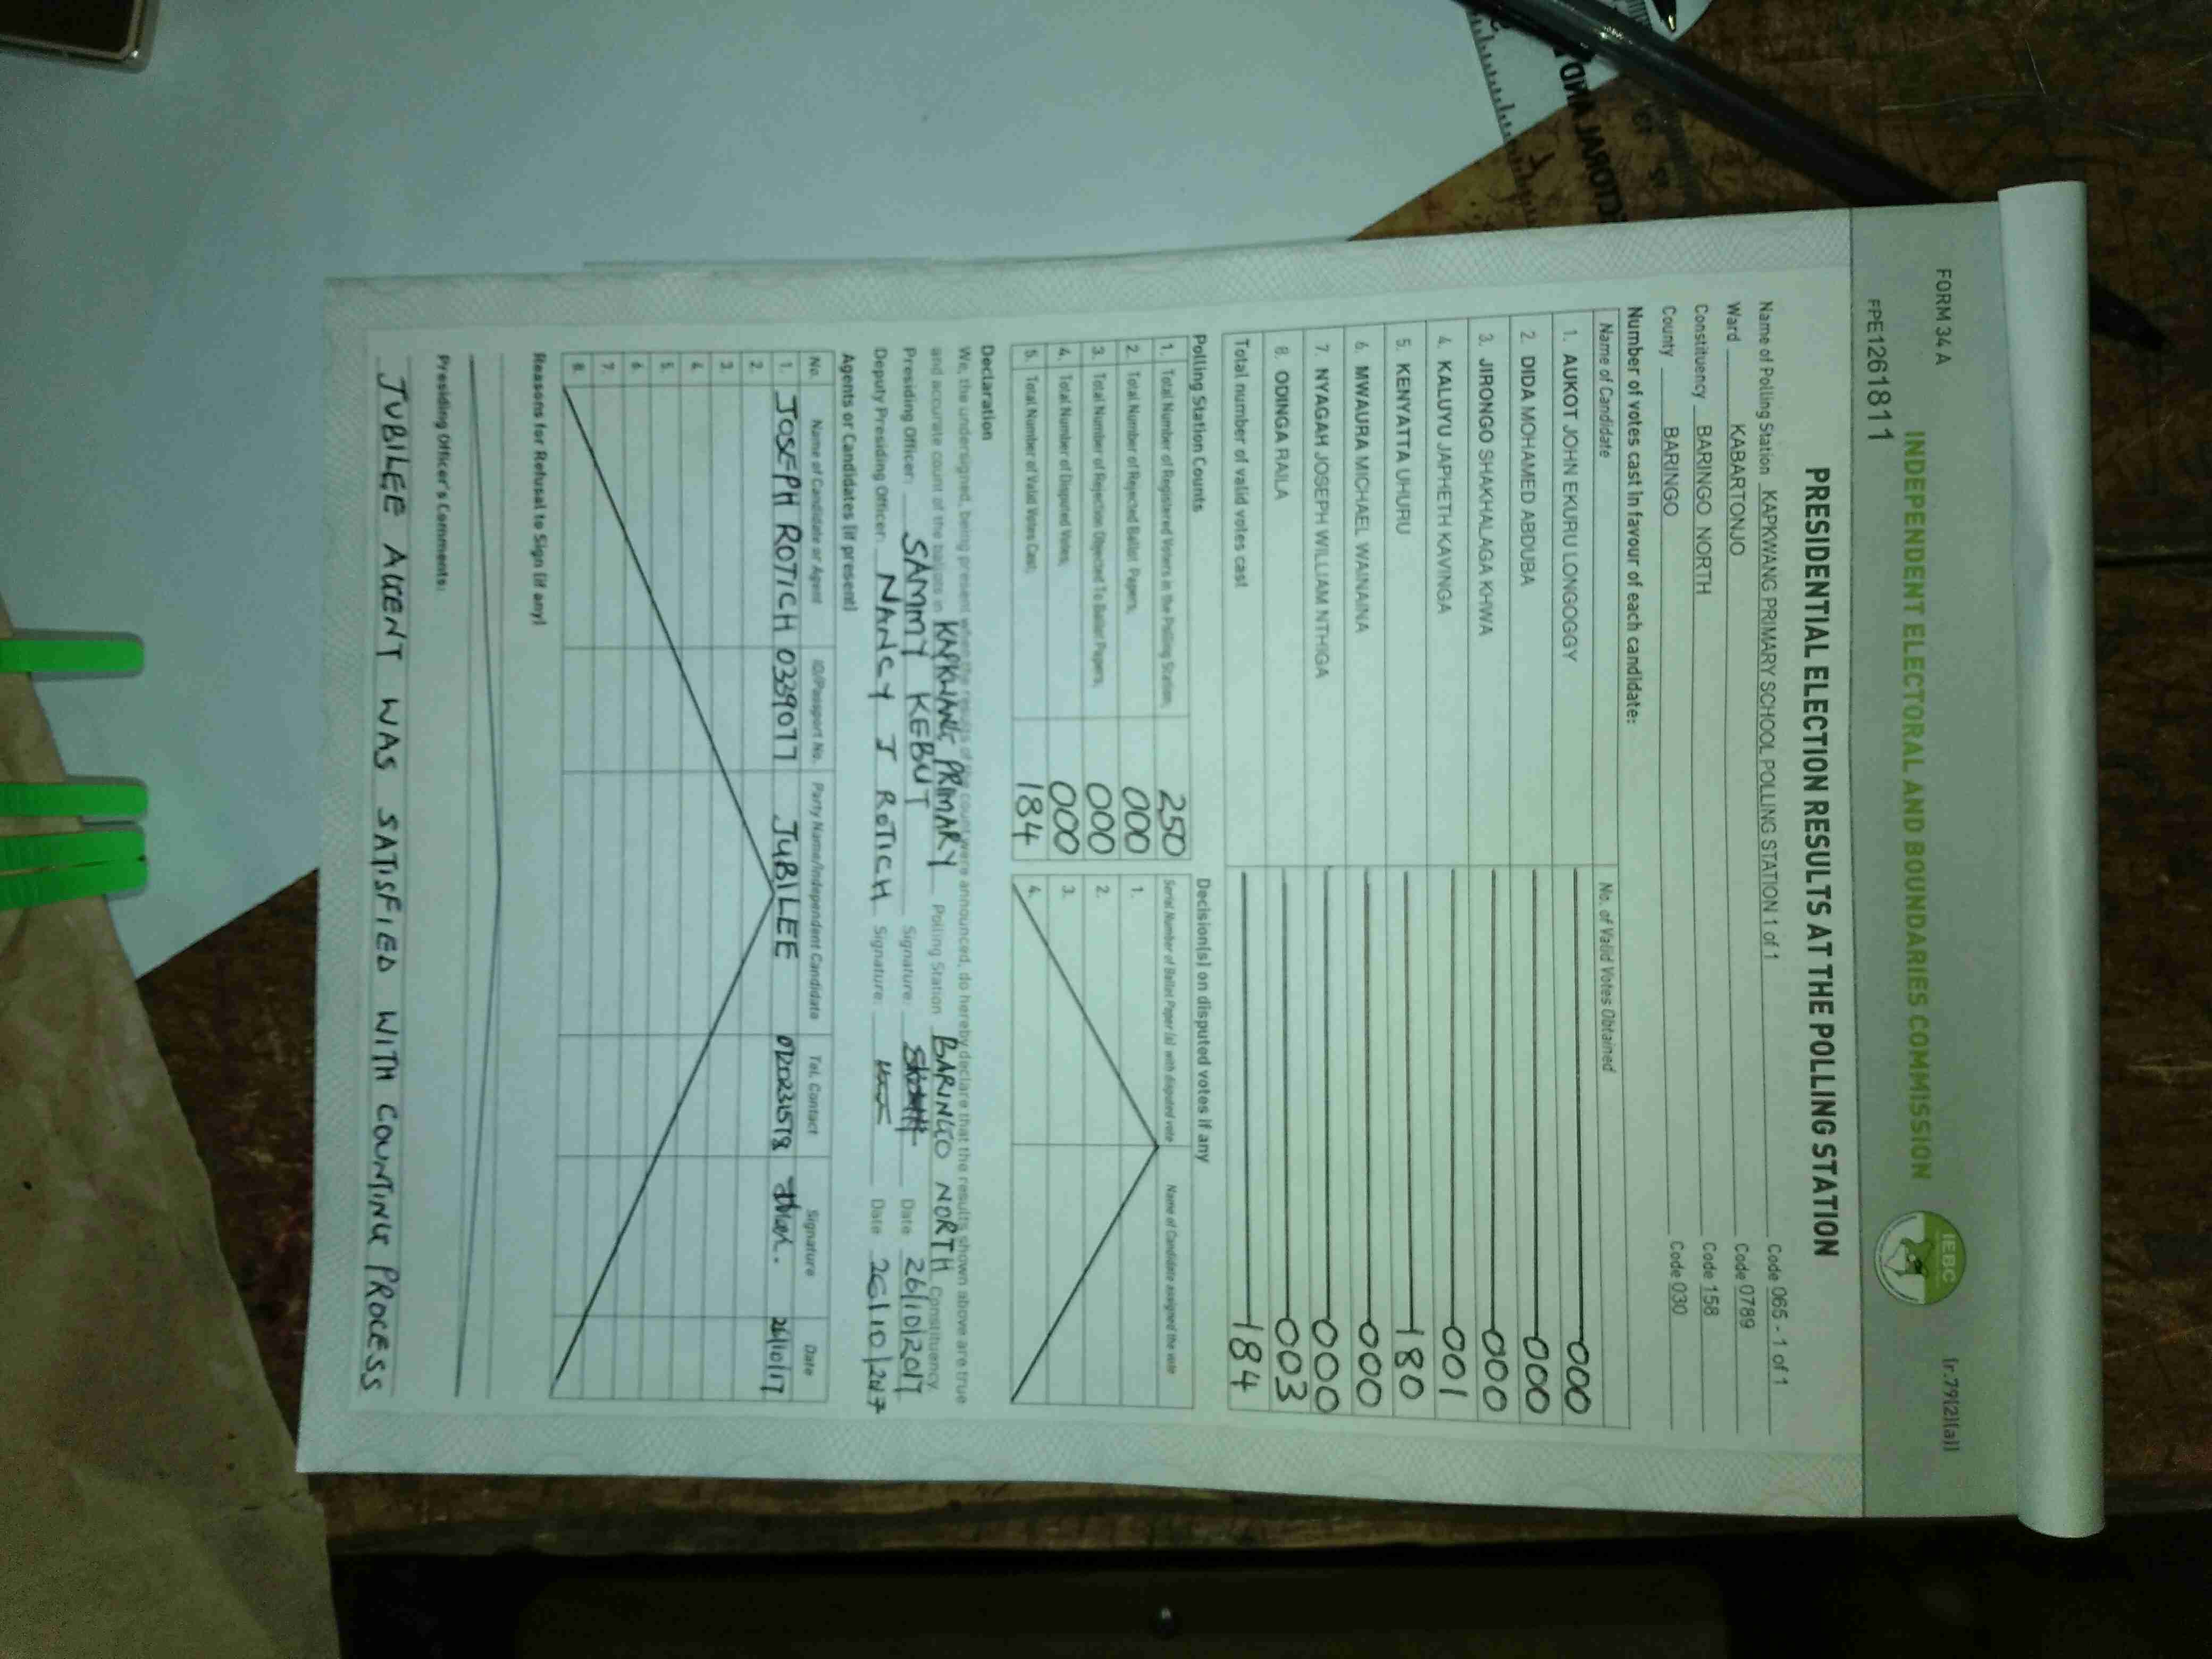 FORM 34 A
(r.79(2)(a))
INDEPENDENT ELECTORAL AND BOUNDARIES COMMISSION
IEBC
FPE1261811
PRESIDENTIAL ELECTION RESULTS AT THE POLLING STATION
Name of Polling Station KAPKWANG PRIMARY SCHOOL POLLING STATION 1 of 1 Code 065 - 1 of 1
Ward KABARTONJO Code 0789
Constituency BARINGO NORTH Code 158
County BARINGO Code 030
Number of votes cast in favour of each candidate:
Name of Candidate No. of Valid Votes Obtained
1. AUKOT JOHN EKURU LONGOGGY 000
2. DIDA MOHAMED ABDUBA 000
3. JIRONGO SHAKHALAGA KHWA 000
4. KALUYU JAPHETH KAVINGA 001
5. KENYATTA UHURU 180
6. MWAURA MICHAEL WAINAINA 000
7. NYAGAH JOSEPH WILLIAM NTHIGA 000
8. ODINGA RAILA 003
Total number of valid votes cast 184
Polling Station Counts
1. Total Number of Registered Voters in the Polling Station; 250
2. Total Number of Rejected Ballot Papers; 000
3. Total Number of Rejection Objected To Ballot Papers; 000
4. Total Number of Disputed Votes; 000
5. Total Number of Valid Votes Cast; 184
Decision(s) on disputed votes if any
Serial Number of Ballot Paper (s) with disputed vote Name of Candidate assigned the vote
1.
2.
3.
4.
Declaration
We, the undersigned, being present when the results of the count were announced, do hereby declare that the results shown above are true
and accurate count of the ballots in KAPKWANG PRIMARY Polling Station BARINGO NORTH Constituency.
Presiding Officer: SAMMY KEBUT Signature: Date 26/10/2017
Deputy Presiding Officer: NANCY J ROTICH Signature: Date 26/10/2017
Agents or Candidates (if present)
No. Name of Candidate or Agent ID/Passport No. Party Name/Independent Candidate Tel. Contact Signature Date
1. JOSEPH ROTICH 0339077 JUBILEE 26/10/17
2.
3.
4.
5.
6.
7.
8.
Reasons for Refusal to Sign (if any)
Presiding Officer's Comments:
JUBILEE AGENT WAS SATISFIED WITH COUNTING PROCESS